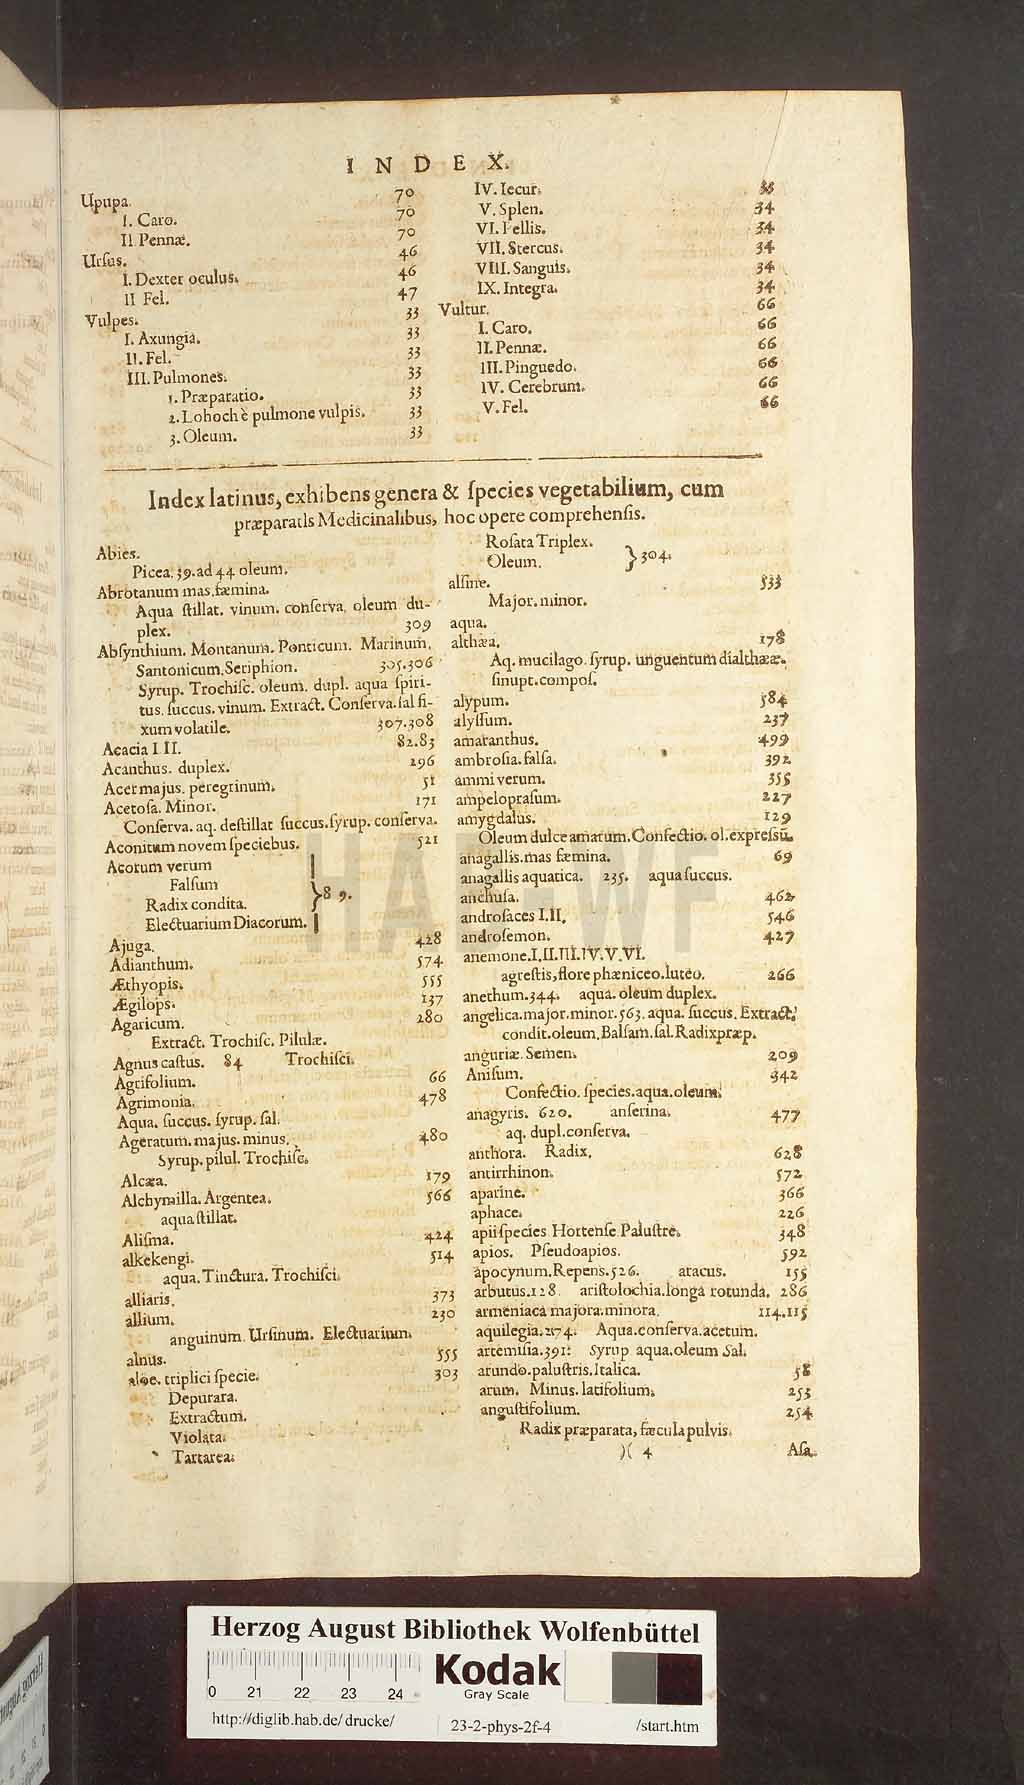 INDEX.
Upupa. 70
I. Caro. 70
II Pennæ. 70
Urſus. 46
I. Dexter oculus. 46
II Fel. 47
Vulpes. 33
I. Axungia. 33
II. Fel. 33
III. Pulmones. 33
1. Præparatio. 33
2. Lohoch è pulmone vulpis. 33
3. Oleum. 33
IV. Iecur. 33
V. Splen. 34
VI. Fellis. 34
VII. Stercus. 34
VIII. Sanguis. 34
IX. Integra. 34
Vultur. 66
I. Caro. 66
II. Pennæ. 66
III. Pinguedo. 66
IV. Cerebrum. 66
V. Fel. 66
Index latinus, exhibens genera & ſpecies vegetabilium, cum
præparatis Medicinalibus, hoc opere comprehenſis.
Abies.
Picea. 39. ad 44 oleum.
Abrotanum mas. fæmina.
Aqua ſtillat. vinum. conſerva. oleum du-
plex. 309
Abſynthium. Montanum. Ponticum. Marinum.
Santonicum. Seriphion. 305.306
Syrup. Trochiſc. oleum. dupl. aqua ſpiri-
tus. ſuccus. vinum. Extract. Conſerva. ſal fi-
xum volatile. 307.308
Acacia I II. 82.83
Acanthus. duplex. 296
Acer majus. peregrinum. 51
Acetoſa. Minor. 171
Conſerva. aq. deſtillat ſuccus. ſyrup. conſerva.
Aconitum novem ſpeciebus. 521
Acorum verum
Falſum
Radix condita. } 8 9.
Electuarium Diacorum.
Ajuga. 428
Adianthum. 574
Æthyopis. 555
Ægilops. 137
Agaricum. 280
Extract. Trochiſc. Pilulæ.
Agnus caſtus. 84 Trochiſci.
Agrifolium. 66
Agrimonia. 478
Aqua. ſuccus. ſyrup. ſal.
Ageratum. majus. minus. 480
Syrup. pilul. Trochiſc.
Alcæa. 179
Alchymilla. Argentea. 566
aqua ſtillat.
Aliſma. 424
alkekengi. 514
aqua. Tinctura. Trochiſci.
alliaris. 373
allium. 230
anguinum. Urſinum. Electuarium.
alnus. 555
aloe. triplici ſpecie. 303
Depurara.
Extractum.
Violata.
Tartarea.
Roſata Triplex.
Oleum. } 304.
alſine. 533
Major. minor.
aqua.
althæa. 178
Aq. mucilago. ſyrup. unguentum dialthææ.
ſinupt. compoſ.
alypum. 584
alyſſum. 237
amaranthus. 499
ambroſia. falſa. 392
ammi verum. 355
ampelopraſum. 227
amygdalus. 129
Oleum dulce amarum. Confectio. ol. expreſsũ.
anagallis. mas fæmina. 69
anagallis aquatica. 235. aqua ſuccus.
anchuſa. 462
androſaces I. II. 546
androſemon. 427
anemone. I. II. III. IV. V. VI.
agreſtis, flore phæniceo. luteo. 266
anethum. 344. aqua. oleum duplex.
angelica. major. minor. 563. aqua. ſuccus. Extract.
condit. oleum. Balſam. ſal. Radix præp.
anguriæ. Semen. 209
Aniſum. 342
Confectio. ſpecies. aqua. oleum.
anagyris. 620. anſerina. 477
aq. dupl. conſerva.
anthora. Radix. 628
antirrhinon. 572
aparine. 366
aphace. 226
apii ſpecies Hortenſe Paluſtre. 348
apios. Pſeudoapios. 592
apocynum. Repens. 526. aracus. 155
arbutus. 128. ariſtolochia. longa rotunda. 286
armeniaca majora. minora. 114.115
aquilegia. 274. Aqua. conſerva. acetum.
artemiſia. 391. Syrup aqua. oleum Sal.
arundo. paluſtris. Italica. 58
arum. Minus. latifolium. 253
anguſtifolium. 254
Radix præparata, fæcula pulvis.
)( 4 Aſa
HAB-WF
Herzog August Bibliothek Wolfenbüttel
0 21 22 23 24
Kodak
Gray Scale
http://diglib.hab.de/drucke/ 23-2-phys-2f-4 /start.htm